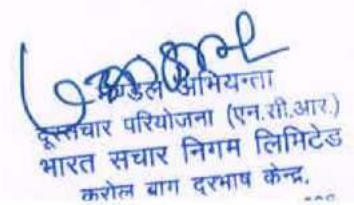 मण्डल अभियन्ता
दूरसंचार परियोजना (एन.सी.आर.)
भारत सचार निगम लिमिटेड
करोल बाग दूरभाष केन्द्र,